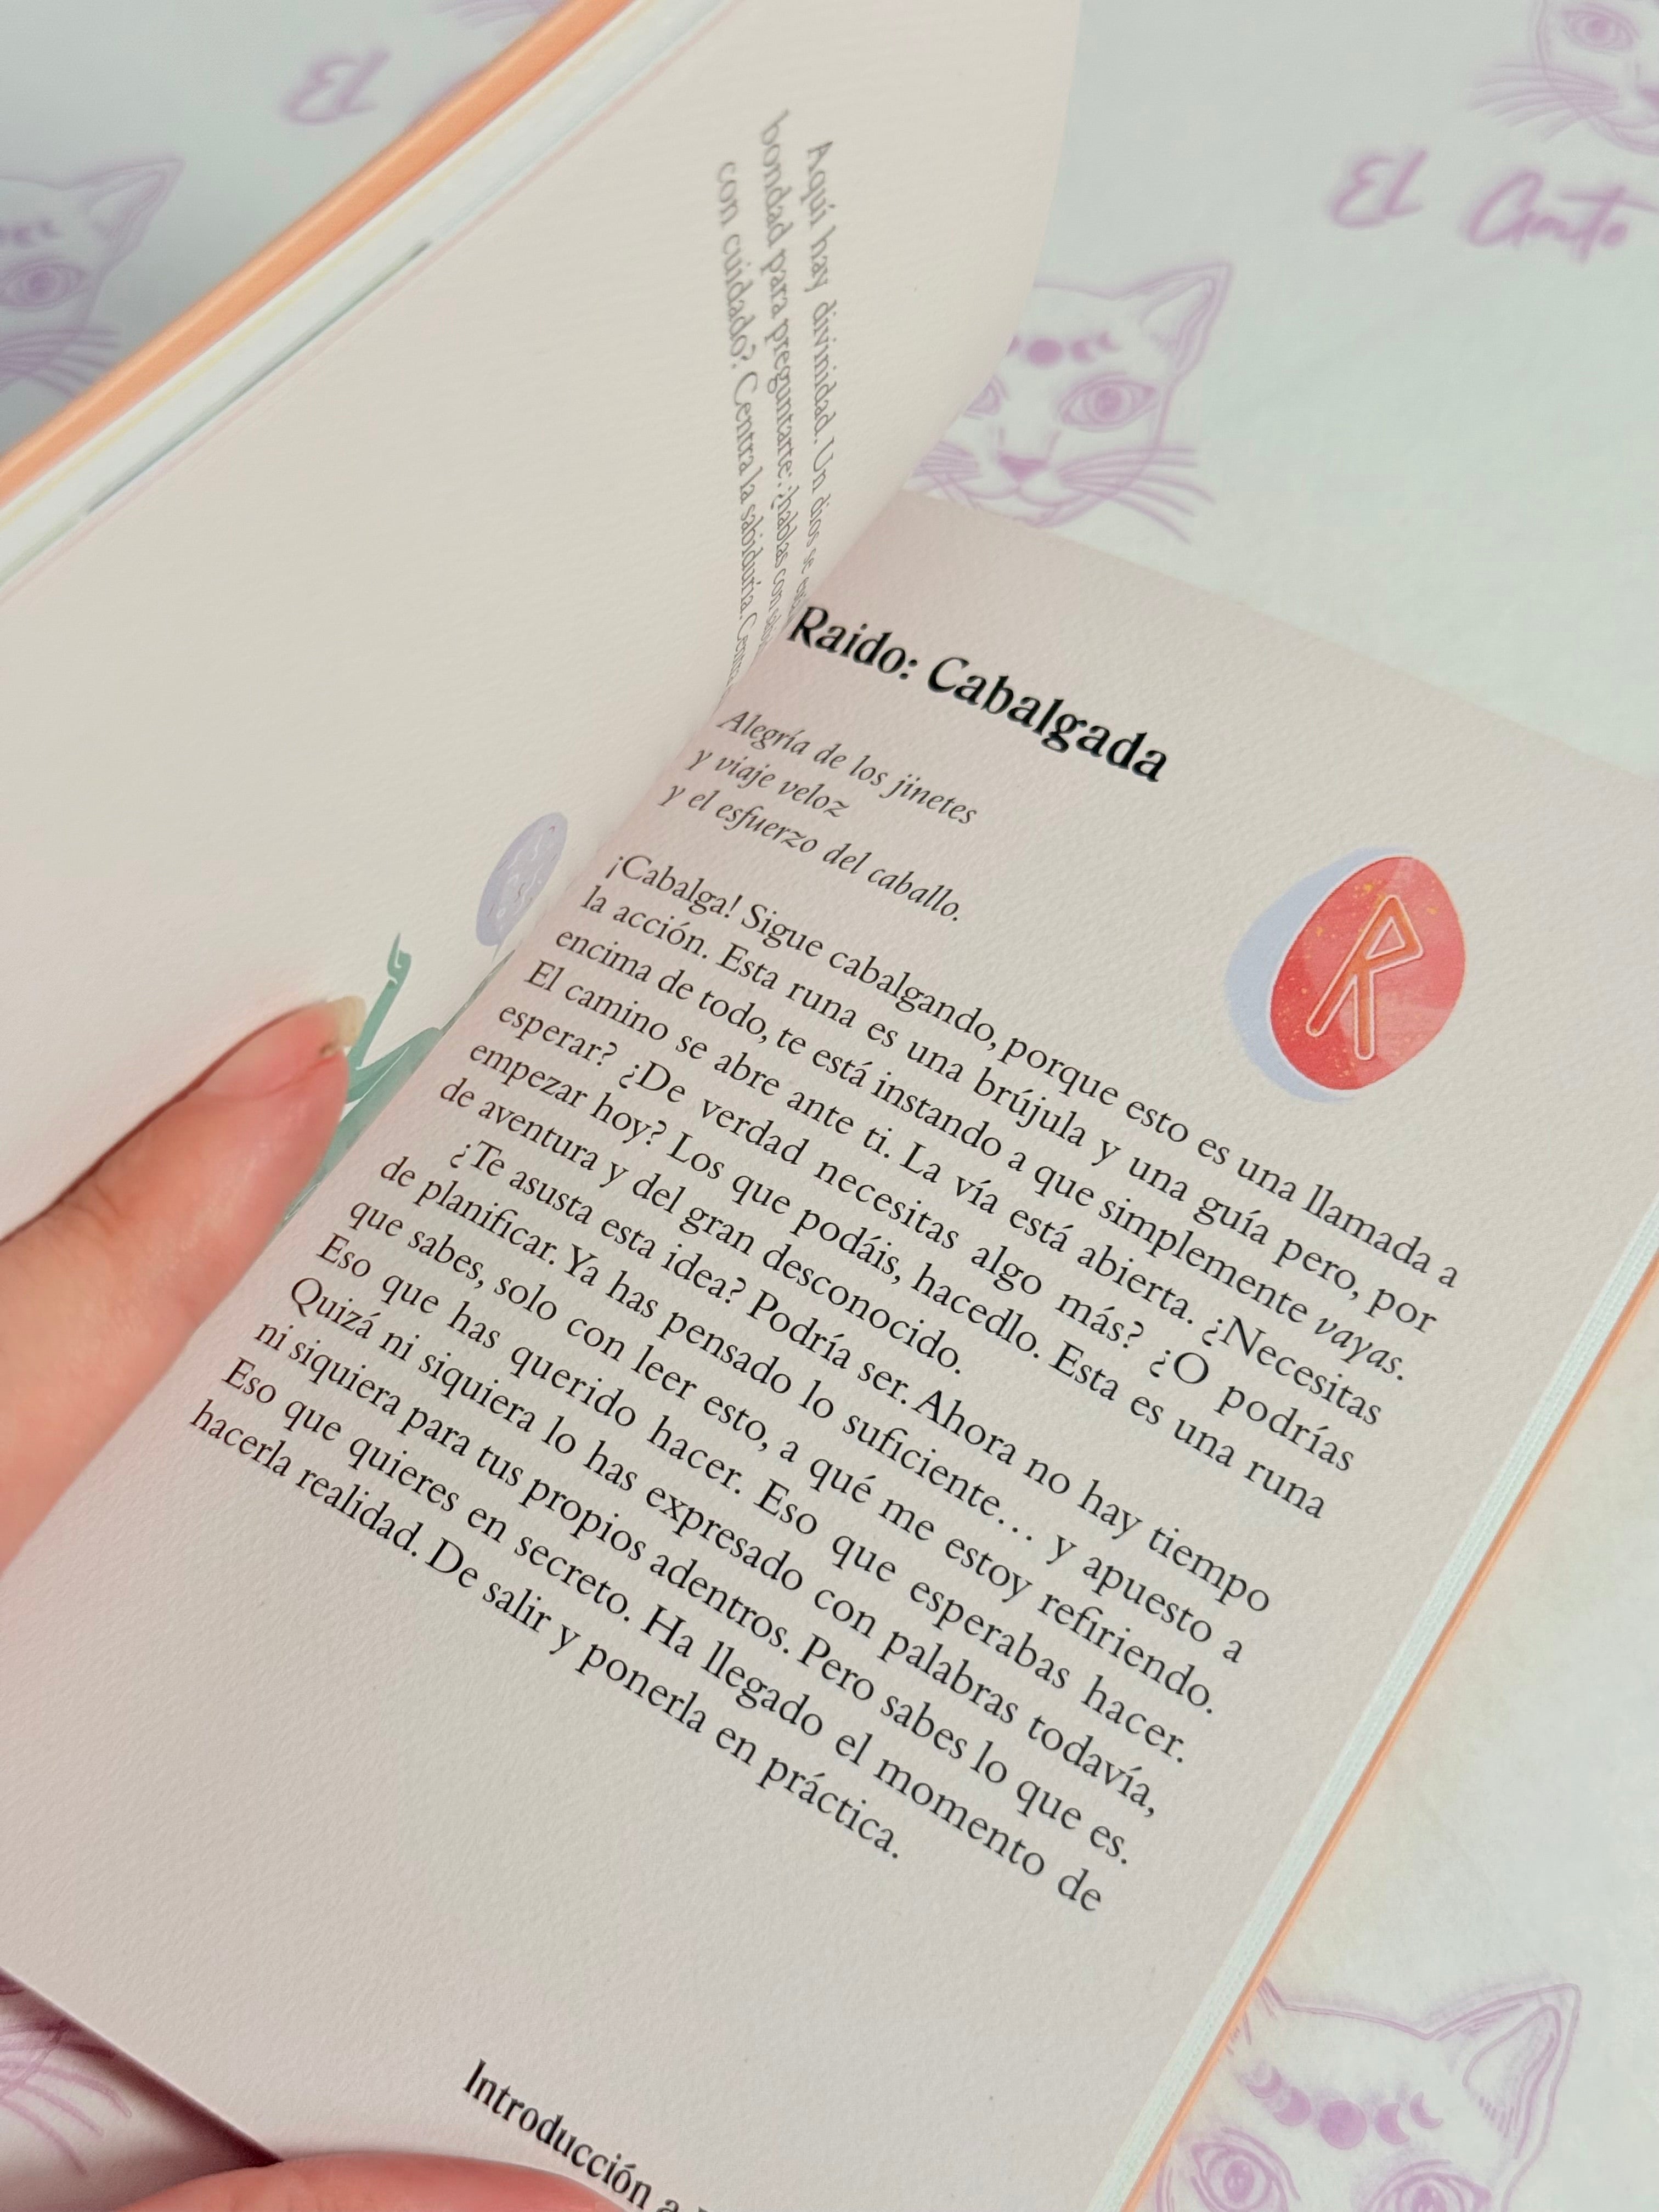 El
El Gato
Aquí hay divinidad. Un dios se
bondad para preguntarte: ¿hablas con
con cuidado? Centra la sabiduría.
Raido: Cabalgada
Alegría de los jinetes
y viaje veloz
y el esfuerzo del caballo.
¡Cabalga! Sigue cabalgando, porque esto es una llamada a
la acción. Esta runa es una brújula y una guía pero, por
encima de todo, te está instando a que simplemente vayas.
El camino se abre ante ti. La vía está abierta. ¿Necesitas
esperar? ¿De verdad necesitas algo más? ¿O podrías
empezar hoy? Los que podáis, hacedlo. Esta es una runa
de aventura y del gran desconocido.
¿Te asusta esta idea? Podría ser. Ahora no hay tiempo
de planificar. Ya has pensado lo suficiente… y apuesto a
que sabes, solo con leer esto, a qué me estoy refiriendo.
Eso que has querido hacer. Eso que esperabas hacer.
Quizá ni siquiera lo has expresado con palabras todavía,
ni siquiera para tus propios adentros. Pero sabes lo que es.
Eso que quieres en secreto. Ha llegado el momento de
hacerla realidad. De salir y ponerla en práctica.
Introducción a